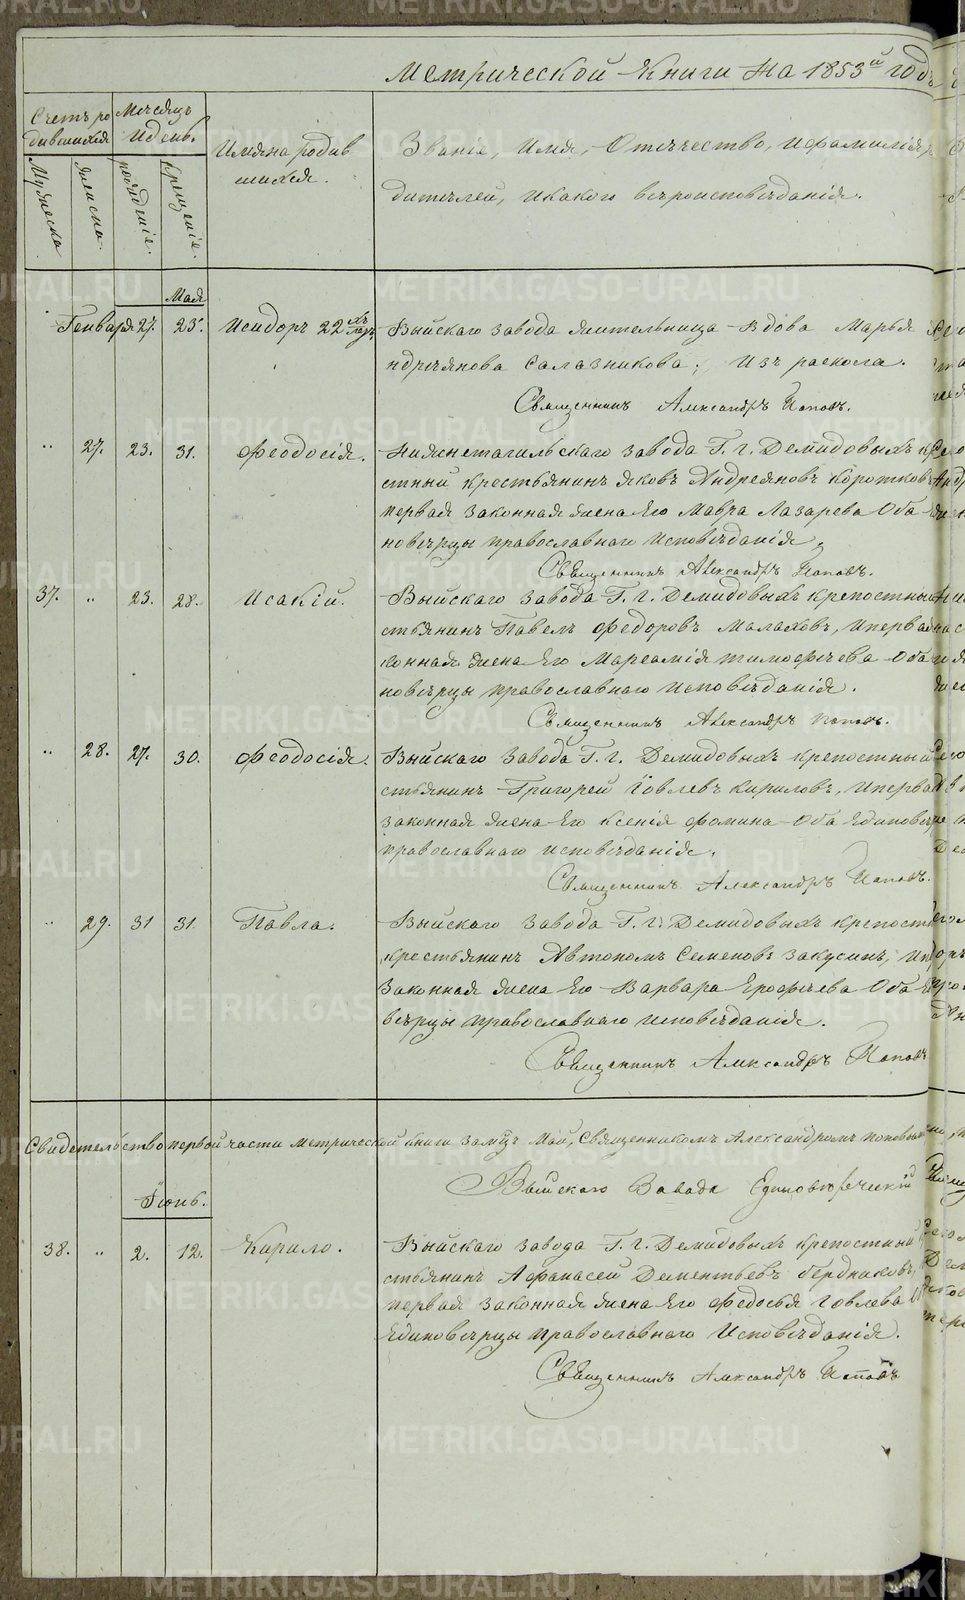 Метрической Книги на 1853й годъ
Счетъ ро
дившихся
Месяцъ
и день.
Имяна родив
шихся.
Званіе, Имя, Отечество, и фамилія, ро
дителей, и какого вероисповеданія.
Мужеска
женска.
рожденія.
крещенія.
Мая
Генваря 27. 25. Исидоръ 22хъ Выйскаго завода жительница вдова Марья
ндреянова Салазникова; изъ раскола.
Священникъ Александръ Поповъ.
" 27. 23. 31. Феодосія. Нижнетагильскаго завода Г. г. Демидовыхъ кре
стный крестьянинъ Яковъ Андреяновъ Коротков
первая законная жена Его Мавра Лазарева Оба
новерцы православнаго исповеданія.
Священникъ Александръ Поповъ.
37. " 23. 28. Исакій. Выйскаго завода Г. г. Демидовыхъ крепостный
стьянинъ Павелъ Федоровъ Малаховъ, и первая
конная жена Его Маремія Тимофеева Оба
новерцы православнаго исповеданія.
Священникъ Александръ Поповъ.
" 28. 27. 30. Феодосія. Выйскаго завода Г. г. Демидовыхъ крепостный
стьянинъ Григорей Іовлевъ Кириловъ, и первая
законная жена Его Ксенія Фомина Оба Единовер
православнаго исповеданія.
Священникъ Александръ Поповъ.
" 29. 31 31. Павла. Выйскаго завода Г. г. Демидовыхъ крепост
крестьянинъ Автономъ Семеновъ Закусинъ, и
законная жена Его Варвара Ерофеева Оба Е
верцы православнаго исповеданія.
Священникъ Александръ Поповъ
Свидетельство первой части метрической книги за мцъ Май, Священникомъ Александромъ Поповым
Выйскаго Завода Единоверческій
Іюнь.
38. " 2. 12. Кирило. Выйскаго завода Г. г. Демидовыхъ крепостный
стьянинъ Афанасей Дементьевъ
первая законная жена Его Федосья Іовлева
Единоверцы православнаго Исповеданія.
Священникъ Александръ Поповъ
METRIKI.GASO-URAL.RU